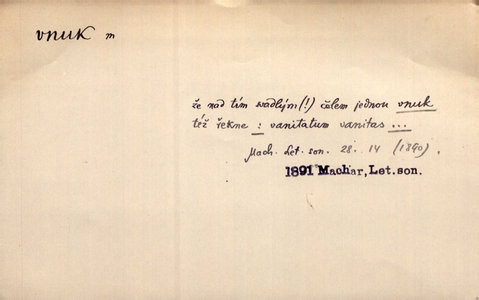 vnuk m
že nad tím svadlým (!) čelem jednou vnuk
též řekne : vanitatum vanitas ...
Mach. Let. son. 28. 14 (1890).
1891 Machar, Let.son.